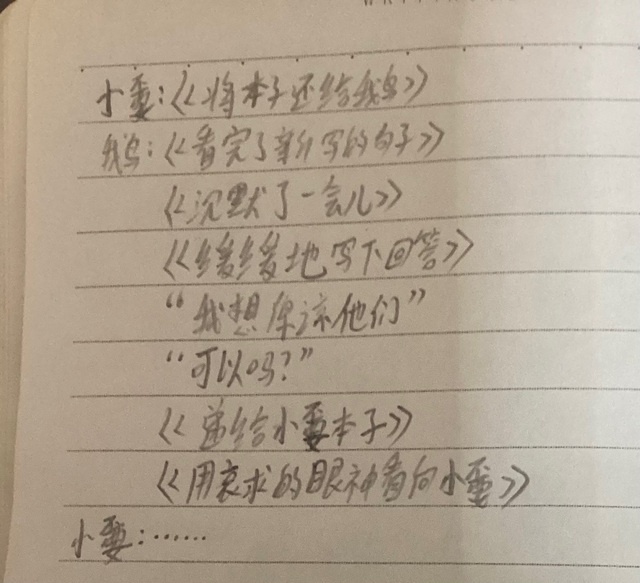 小要:《将本子还给我鸟》
我鸟:《看完了新写的句子》
《沉默了一会儿》
《缓缓地写下回答》
“我想原谅他们”
“可以吗?”
《递给小要本子》
《用哀求的眼神看向小要》
小要:……